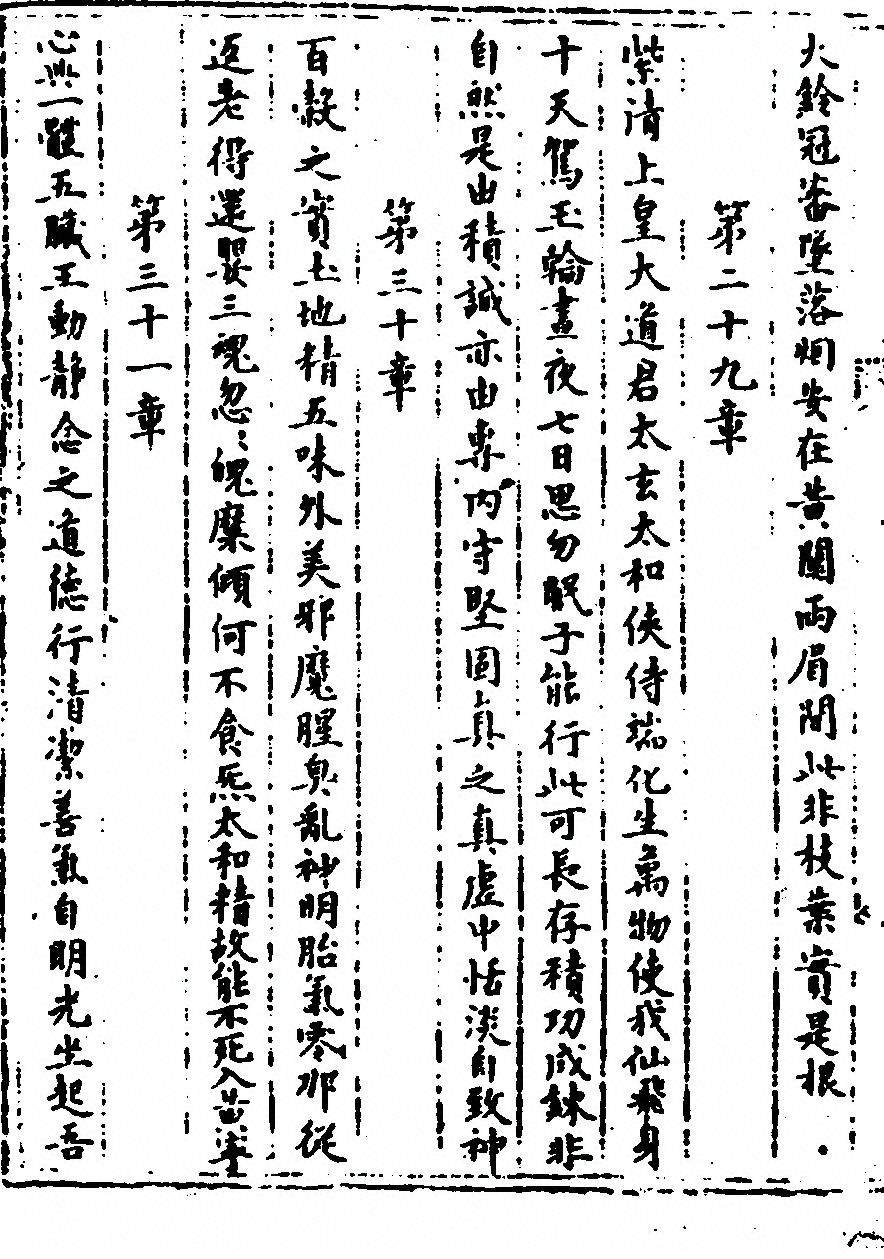 火鈴冠霄墜落烟安在黃闕兩眉間此非枝葉實是根
第二十九章
紫清上皇大道君太玄太和俠侍端化生萬物使我仙飛身
十天駕玉輪晝夜七日思勿眠子能行此可長存積功成鍊非
自然是由積誠亦由專內守堅固真之真虛中恬淡自致神
第三十章
百穀之實土地精五味外美邪魔腥臭亂神明胎氣零那從
返老得還嬰三魂忽〻魄糜傾何不食炁太和精故能不死入黃寧
第三十一章
心典一體五臟王動靜念之道德行清潔善氣自明光坐起吾